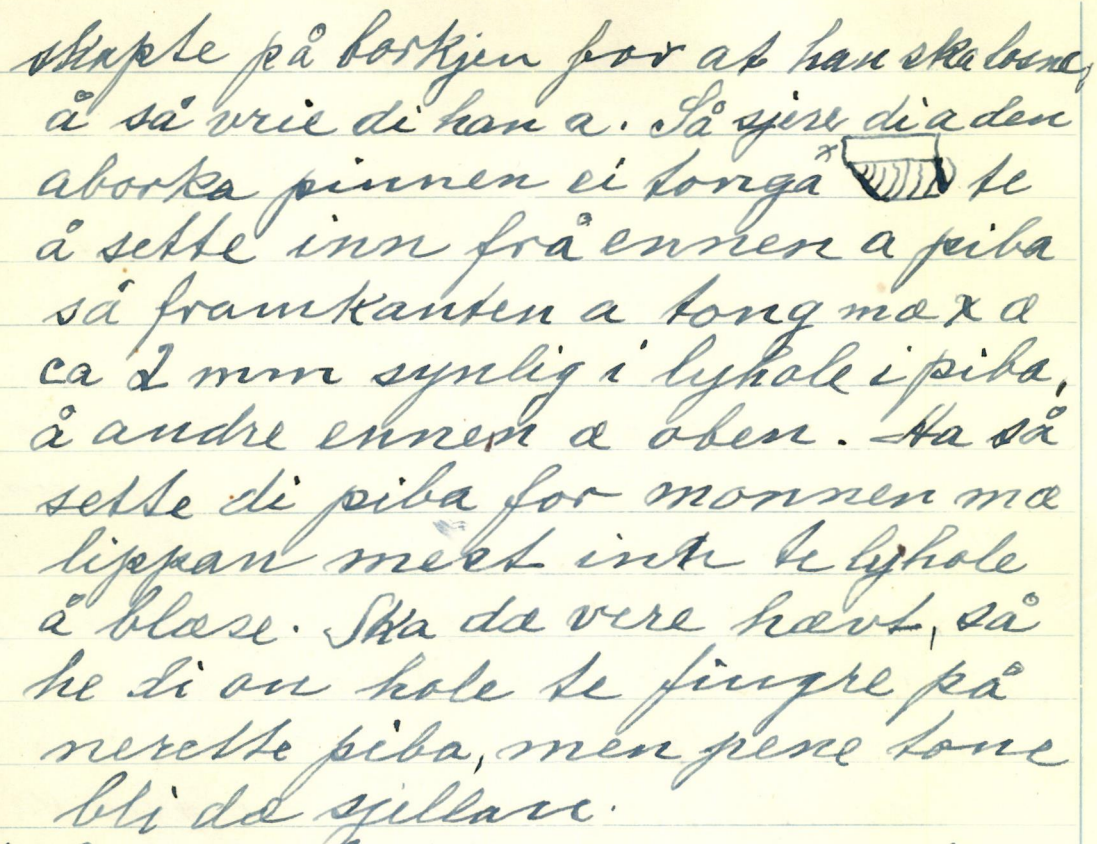 skapte på borkjen for at han ska losne,
å så vrie di han a. Så sjere di a den
aborka pinnen ei tonga x te
å sette inn frå ennen a piba
så framkanten a tong mæ x æ
ca 2 mm synlig i lyhole i piba,
å andre ennen æ oben. Ha så
sette di piba for monnen mæ
lippan mest inn te lyhole
å blæse. Ska dæ vere hævt, så
he di on hole te fingre på
nerette piba, men pene tone
bli dæ sjellan.